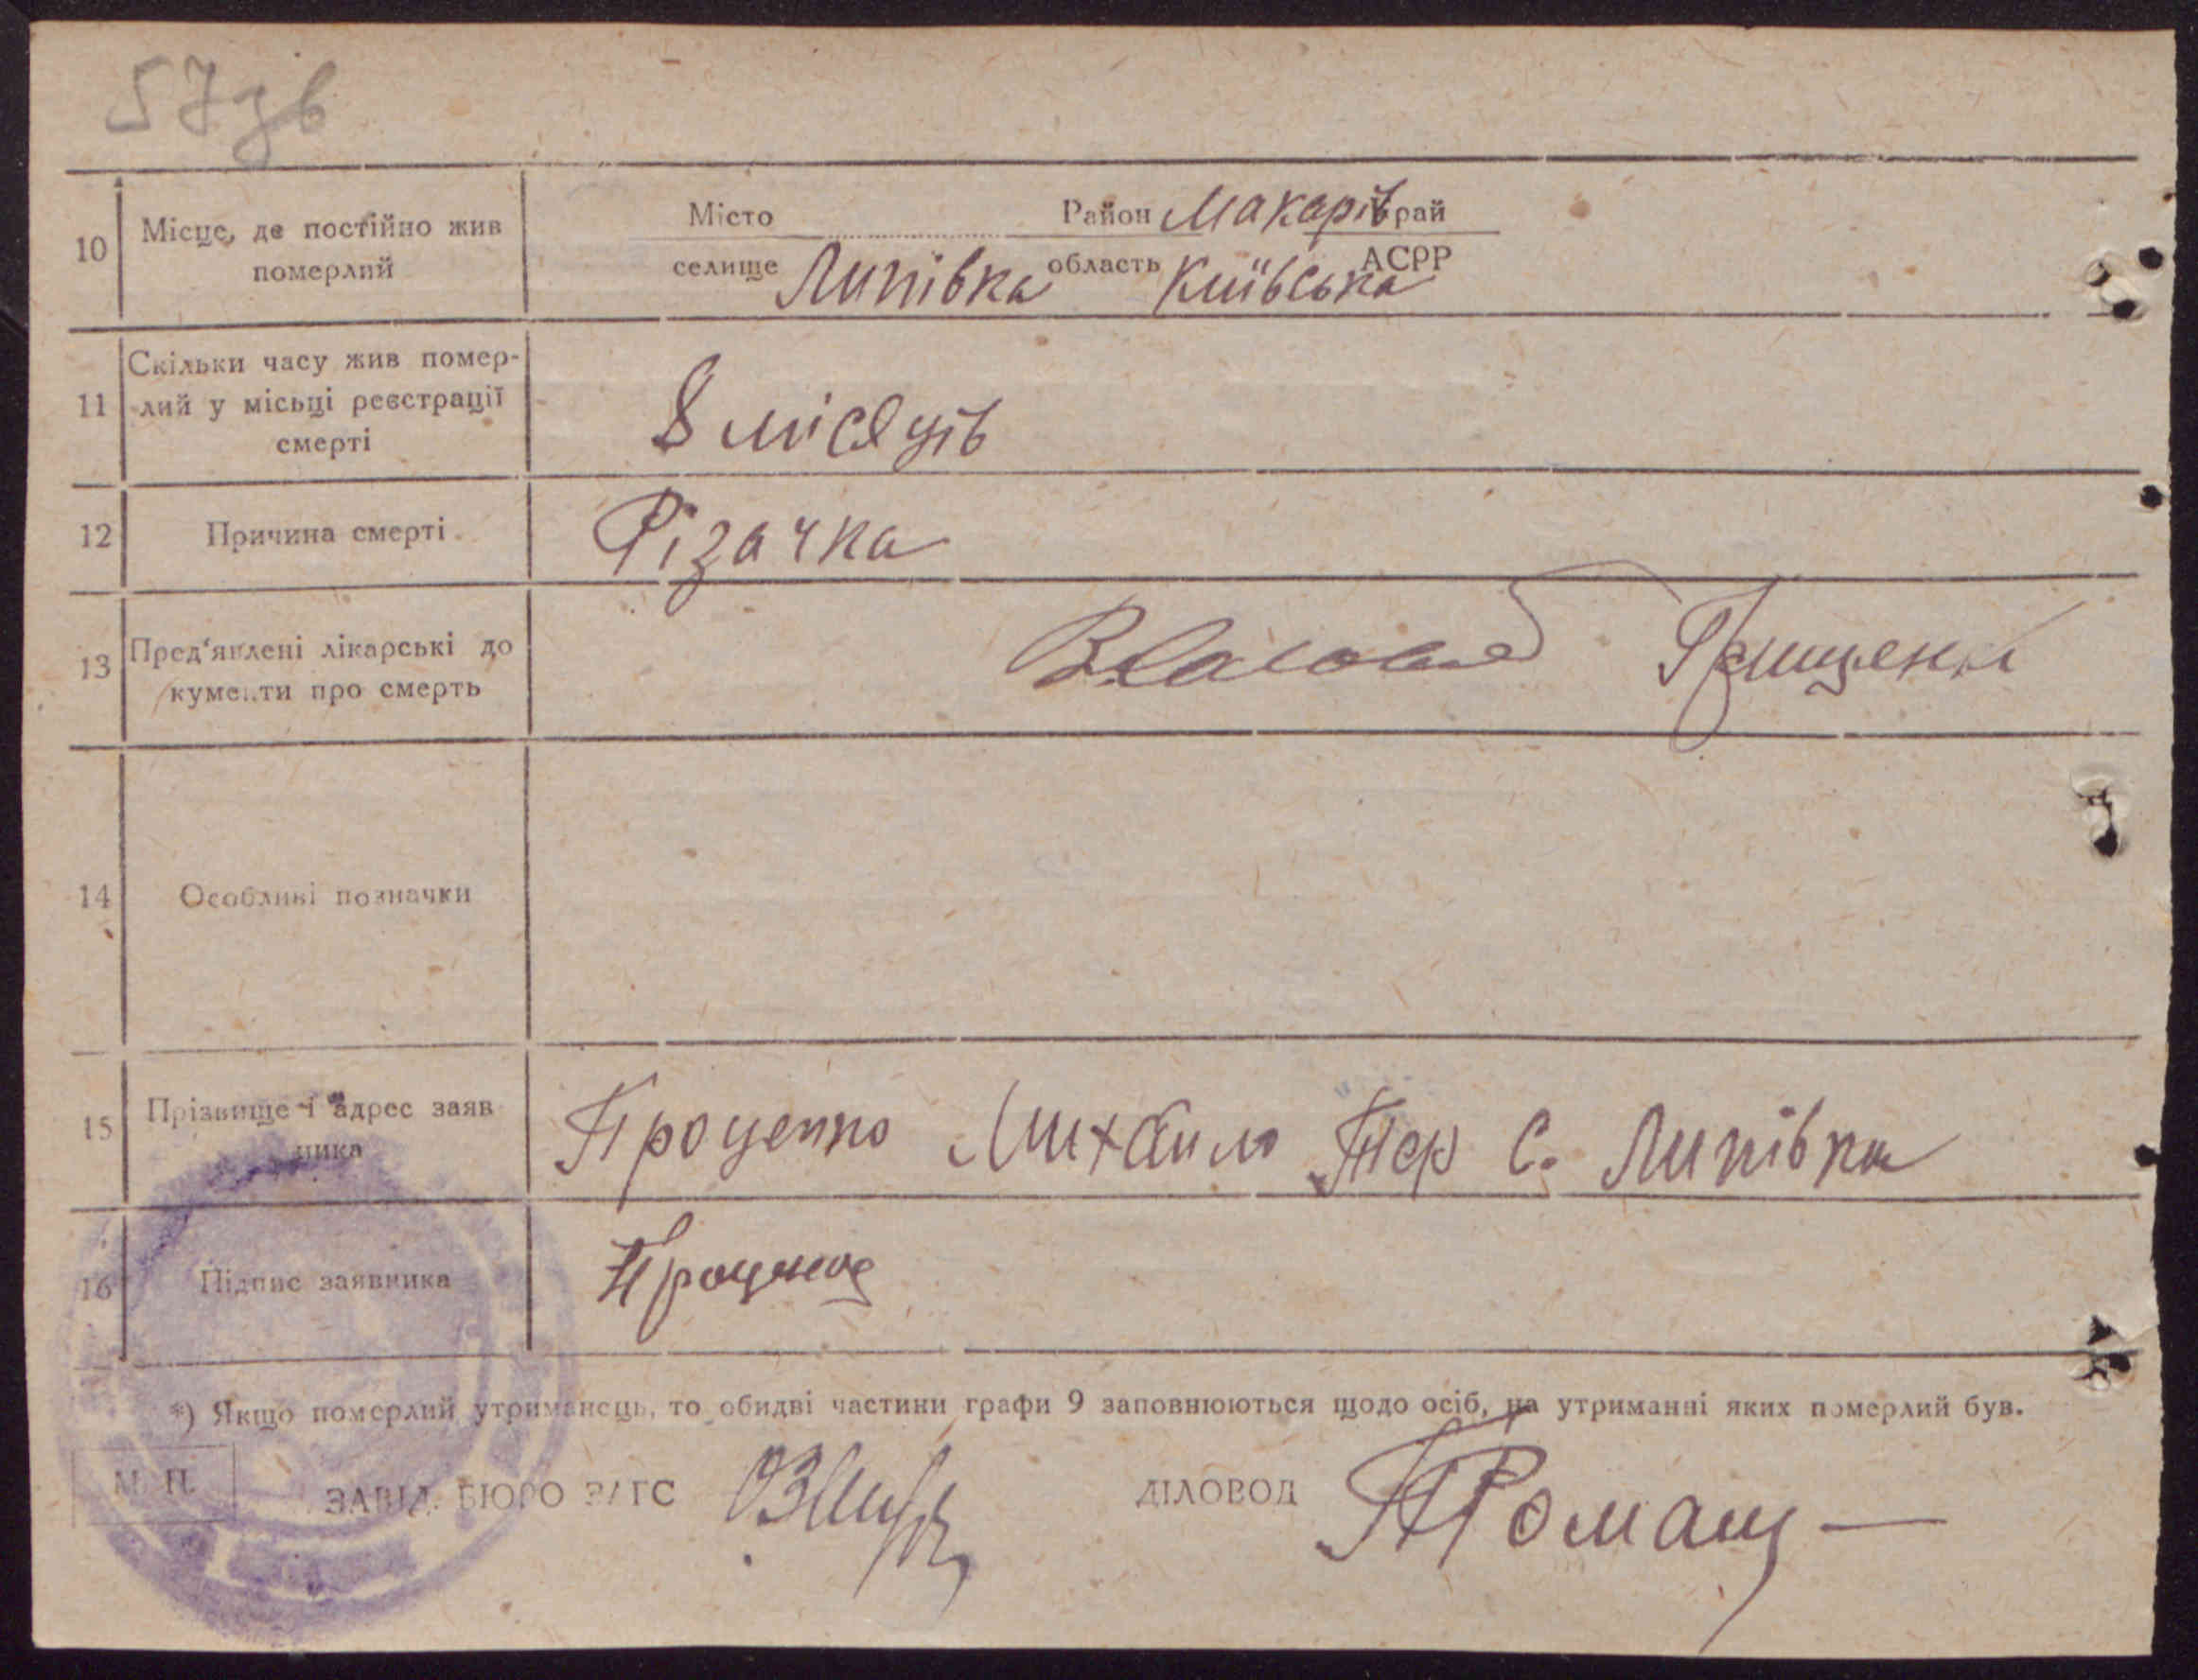 57зв
10 Місце, де постійно жив померлий
Місто Район Макарів край
селище Липівка область Київська АСРР
11 Скільки часу жив помер-
лий у місьці реєстрації
смерті
8 місяців
12 Причина смерті. Різачка
13 Пред'явлені лікарські до
кументи про смерть
Грищенко
14 Особливі позначки
15 Прізвище і адрес заяв
ника
Проценко Михайло с. Липівка
16 Підпис заявника Проценко
*) Якщо померлий утриманець, то обидві частини графи 9 заповнюються щодо осіб, на утриманні яких померлий був.
М. П. ЗАВІД. БЮРО ЗАГС ДІЛОВОД